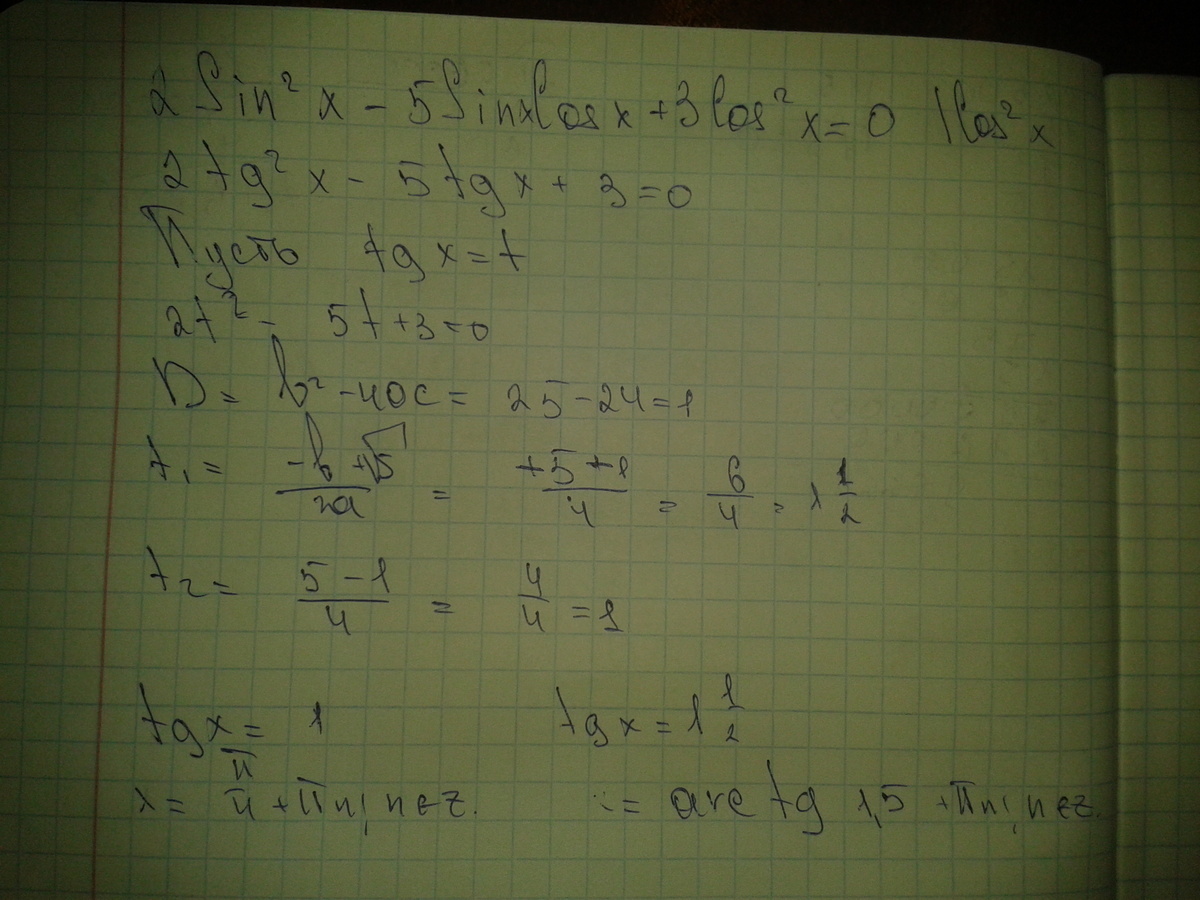 2 Sin² x - 5 Sinx Cos x + 3 Cos² x = 0 | Cos² x
2 tg² x - 5 tg x + 3 = 0
Пусть tg x = t
2t² - 5t + 3 = 0
D = b² - 4ac = 25 - 24 = 1
t₁ = (-b + √D)/2a = (+5 + 1)/4 = 6/4 = 1 1/2
t₂ = (5 - 1)/4 = 4/4 = 1
tg x = 1 tg x = 1 1/2
x = π/4 + πn, n ∈ z. = arc tg 1,5 + πn, n ∈ z.